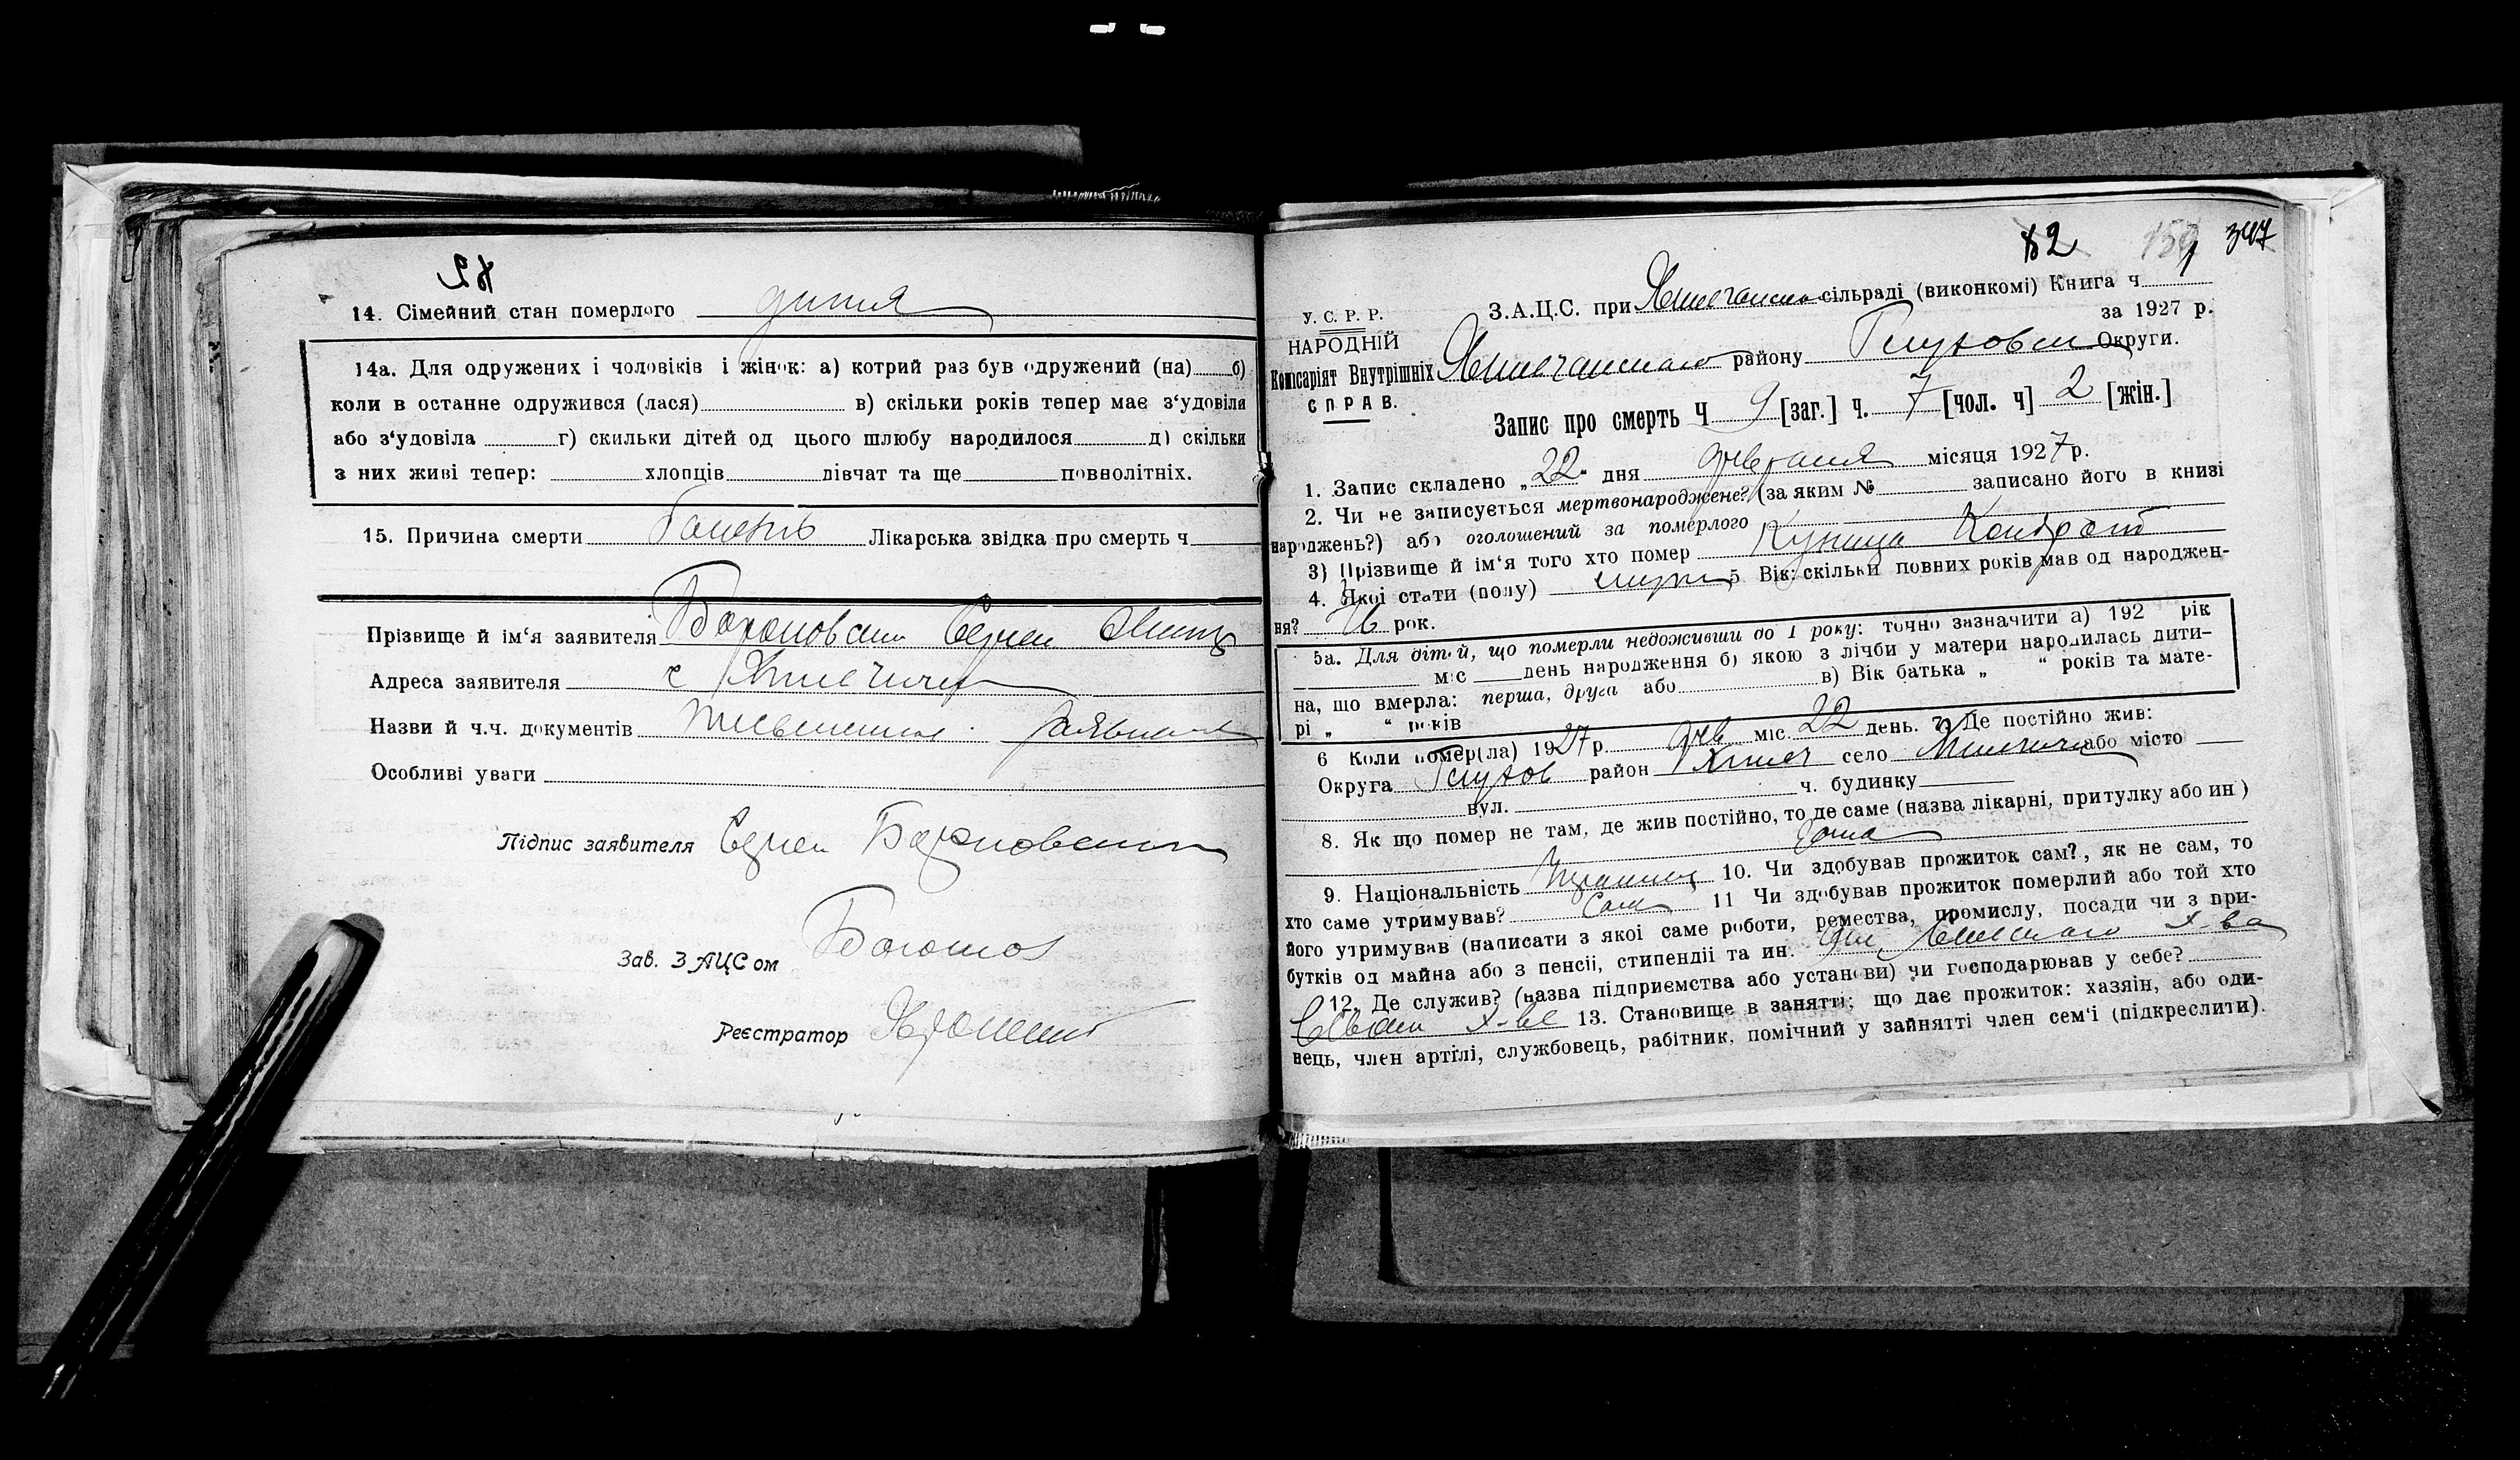 82
14. Сімейний стан померлого дитя
14а. Для одружених і чоловіків і жінок: а) котрий раз був одружений (на) б)
коли в останне одружився (лася) в) скільки років тепер має з‘удовіла
або з‘удовіла г) скильки дітей од цього шлюбу народилося д) скільки
з них живі тепер: хлопців дівчат та ще повнолітніх.
15. Причина смерти Лікарська звідка про смерть ч
Прізвище й ім‘я заявителя Барановский Сергей
Адреса заявителя с
Назви й ч.ч. документів
Особливі уваги
Підпис заявителя Сергей Барановский
Зав. ЗАЦСом
Реєстратор
82 347
У. С. Р. Р.
НАРОДНІЙ
Комісаріят Внутрішніх
СПРАВ.
З.А.Ц.С. при сільраді (виконкомі) Книга ч 1
за 1927 р.
району Глуховской Округи.
Запис про смерть Ч 9 [заг.] ч. 7 [чол. ч] 2 [жін.]
1. Запис складено „22“ дня февраля місяця 1927 р.
2. Чи не записується мертвонароджене? (за яким № записано його в книзі
народжень?) або оголошений за померлого
3) Прізвище й ім‘я того хто помер Куница Кондрат
4. Якої стати (полу) муж 5 Вік: скільки повних років мав од народжен-
ня? 76 рок.
5а. Для дітей, що померли недоживши до 1 року: точно зазначити а) 192 рік
міс день народження б) якою з лічби у матери народилась дити-
на, що вмерла: перша, друга або в) Вік батька „ “ років та мате-
рі „ “ років
6 Коли помер(ла) 1927 р. фев міс. 22 день. 7. Де постійно жив:
Округа Глухов район село або місто
вул. ч. будинку
8. Як що помер не там, де жив постійно, то де саме (назва лікарні, притулку або ин)
дома
9. Національність Украинец 10. Чи здобував прожиток сам?, як не сам, то
хто саме утримував? Сам 11 Чи здобував прожиток померлий або той хто
його утримував (написати з якої саме роботи, ремества, промислу, посади чи з при-
бутків од майна або з пенсії, стипендії та ин. х-ва
12. Де служив? (назва підприємства або установи) чи господарював у себе?
х-ве 13. Становище в занятті; що дає прожиток: хазяін, або оди-
нець, член артілі, службовець, рабітник, помічний у зайнятті член сем‘і (підкреслити).